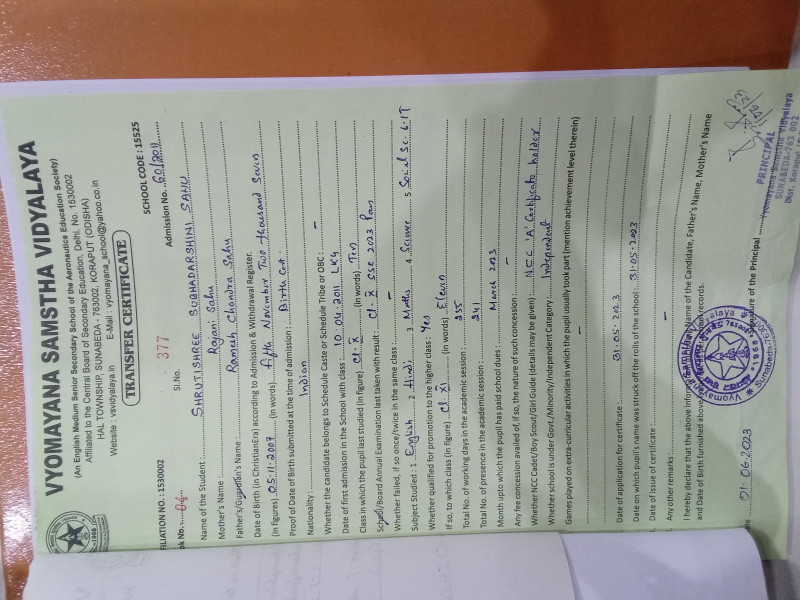 VYOMAYANA SAMSTHA VIDYALAYA
(An English Medium Senior Secondary School of the Aeronautics Education Society)
Affiliated to the Central Board of Secondary Education, Delhi. No. 1530002
HAL TOWNSHIP, SUNABEDA - 763002, KORAPUT (ODISHA)
Website : vsvidyalaya.in E-Mail : vyomayana_school@yahoo.co.in
TRANSFER CERTIFICATE
FILIATION NO. : 1530002 SCHOOL CODE : 15525
ok No. 04 Sl.No. 377 Admission No. 60/2011
Name of the Student : SHRUTISHREE SUBHADARSHINI SAHU
Mother's Name : Rajani Sahu
Father's/Guardian's Name : Ramesh Chandra Sahu
Date of Birth (in ChristianEra) according to Admission & Withdrawal Register.
(In figures) 05.11.2007 (in words) Fifth November Two Thousand Seven
Proof of Date of Birth submitted at the time of admission : Birth Cert.
Nationality : Indian
Whether the candidate belongs to Schedule Caste or Schedule Tribe or OBC : -
Date of first admission in the School with class : 10.04.2011 LKG
Class in which the pupil last studied (In figure) Cl. X (in words) Ten
School/Board Annual Examination last taken with result : Cl. X SSE 2023 Pass
Whether failed, if so once/twice in the same class : -
Subject Studied : 1 English 2 Hindi 3 Maths 4 Science 5 Social Sc. 6. IT
Whether qualified for promotion to the higher class : Yes
If so, to which class (in figure) Cl. XI (in words) Eleven
Total No. of working days in the academic session : 255
Total No. of presence in the academic session : 241
Month upto which the pupil has paid school dues : March 2023
Any fee concession availed of, if so, the nature of such concession : -
Whether NCC Cadet/Boy Scout/Girl Guide (details may be given) : NCC 'A' Certificate holder
Whether school is under Govt./Minority/Independent Category : Independent
Games played on extra-curricular activities in which the pupil usually took part (mention achievement level therein)
-
Date of application for certificate : 31.05.2023
Date on which pupil's name was struck off the rolls of the school : 31.05.2023
Date of issue of certificate :
Any other remarks : -
I hereby declare that the above information Name of the Candidate, Father's Name, Mother's Name
and Date of Birth furnished above records.
te 01.06.2023 Signature of the Principal
PRINCIPAL
Vyomayana Samstha Vidyalaya
SUNABEDA-763 002
Dist. Koraput